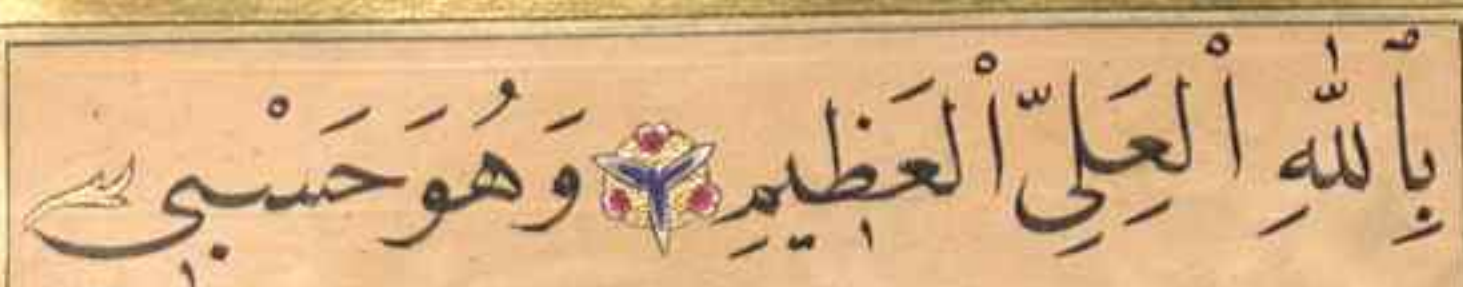 بِاللّٰهِ الْعَلِيِّ الْعَظِيمِ وَهُوَ حَسْبِي